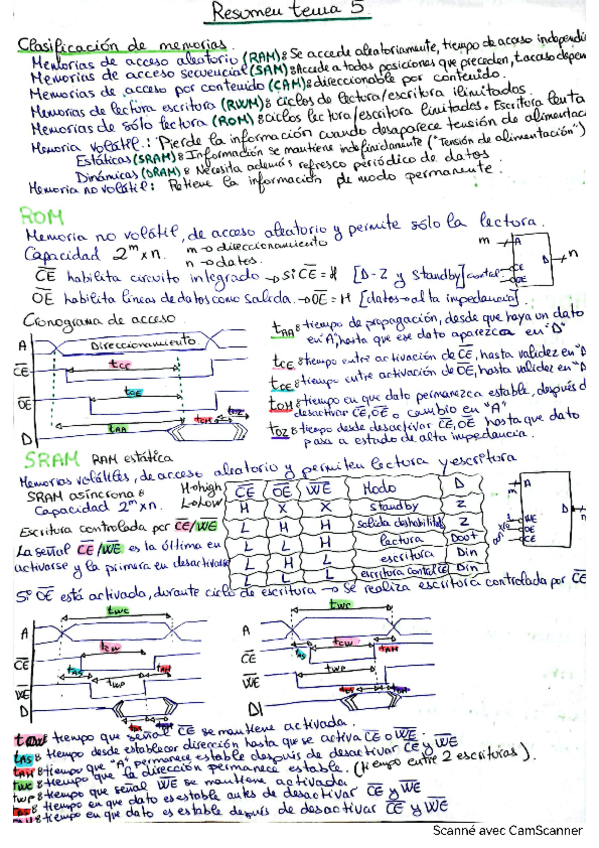 Resumen tema 5.
Clasificación de memorias.
Memorias de acceso aleatorio (RAM): Se accede aleatoriamente, tiempo de acceso independi
Memorias de acceso secuencial (SAM): Accede a todas posiciones que preceden, tacceso depen
Memorias de acceso por contenido (CAM): direccionable por contenido.
Memorias de lectura escritura (RWM): ciclos de lectura/escritura ilimitados.
Memorias de sólo lectura (ROM): ciclos lectura/escritura limitados. Escritura lenta
Memoria volátil: Pierde la información cuando desaparece tensión de alimentac
Estáticas (SRAM): Información se mantiene indefinidamente ("Tensión de alimentación")
Dinámicas (DRAM): Necesita además refresco periódico de datos
Memoria no volátil: Retiene la información de modo permanente.
ROM
Memoria no volátil, de acceso aleatorio y permite sólo la lectura.
Capacidad 2^m x n. m → direccionamiento
n → datos.
m A D n
CE OE
CE habilita circuito integrado → Si CE = H [D-Z y Standby] control
OE habilita líneas de datos como salida. → OE = H [datos → alta impedancia].
Cronograma de acceso.
A Direccionamiento
CE tCE
OE tOE
tAA tOH tOZ
D
tAA: tiempo de propagación, desde que haya un dato
en "A", hasta que ese dato aparezca en "D"
tCE: tiempo entre activación de CE, hasta validez en "D
tCE: tiempo entre activación de OE, hasta validez en "D
tOH: tiempo en que dato permanezca estable, después d
desactivar CE, OE o cambio en "A"
tOZ: tiempo desde desactivar CE, OE hasta que dato
pasa a estado de alta impedancia.
SRAM RAM estática
Memorias volátiles, de acceso aleatorio y permiten lectura y escritura
SRAM asíncrona:
Capacidad 2^m x n.
H→high
L→Low
Escritura controlada por CE/WE
La señal CE/WE es la última en
activarse y la primera en desactivarse
CE OE WE Modo D
H X X standby Z
L H H salida deshabilitada Z
L L H lectura Dout
L H L escritura Din
L L L escritura control CE Din
m A D n
WE OE CE
Si OE está activada, durante ciclo de escritura → Se realiza escritura controlada por CE
tWC
A
CE tCW
tAS tWP tAH
WE
D
tWC
A
CE tAS tCW tAH
WE tWP
D
tiempo que señal CE se mantiene activada.
tAS: tiempo desde establecer dirección hasta que se activa CE o WE.
tAH: tiempo que "A" permanece estable después de desactivar CE y WE
tWC: tiempo que la dirección permanece estable. (tiempo entre 2 escrituras).
tWP: tiempo que señal WE se mantiene activada
tiempo en que dato es estable antes de desactivar CE y WE
tiempo en que dato es estable después de desactivar CE y WE
Scanné avec CamScanner